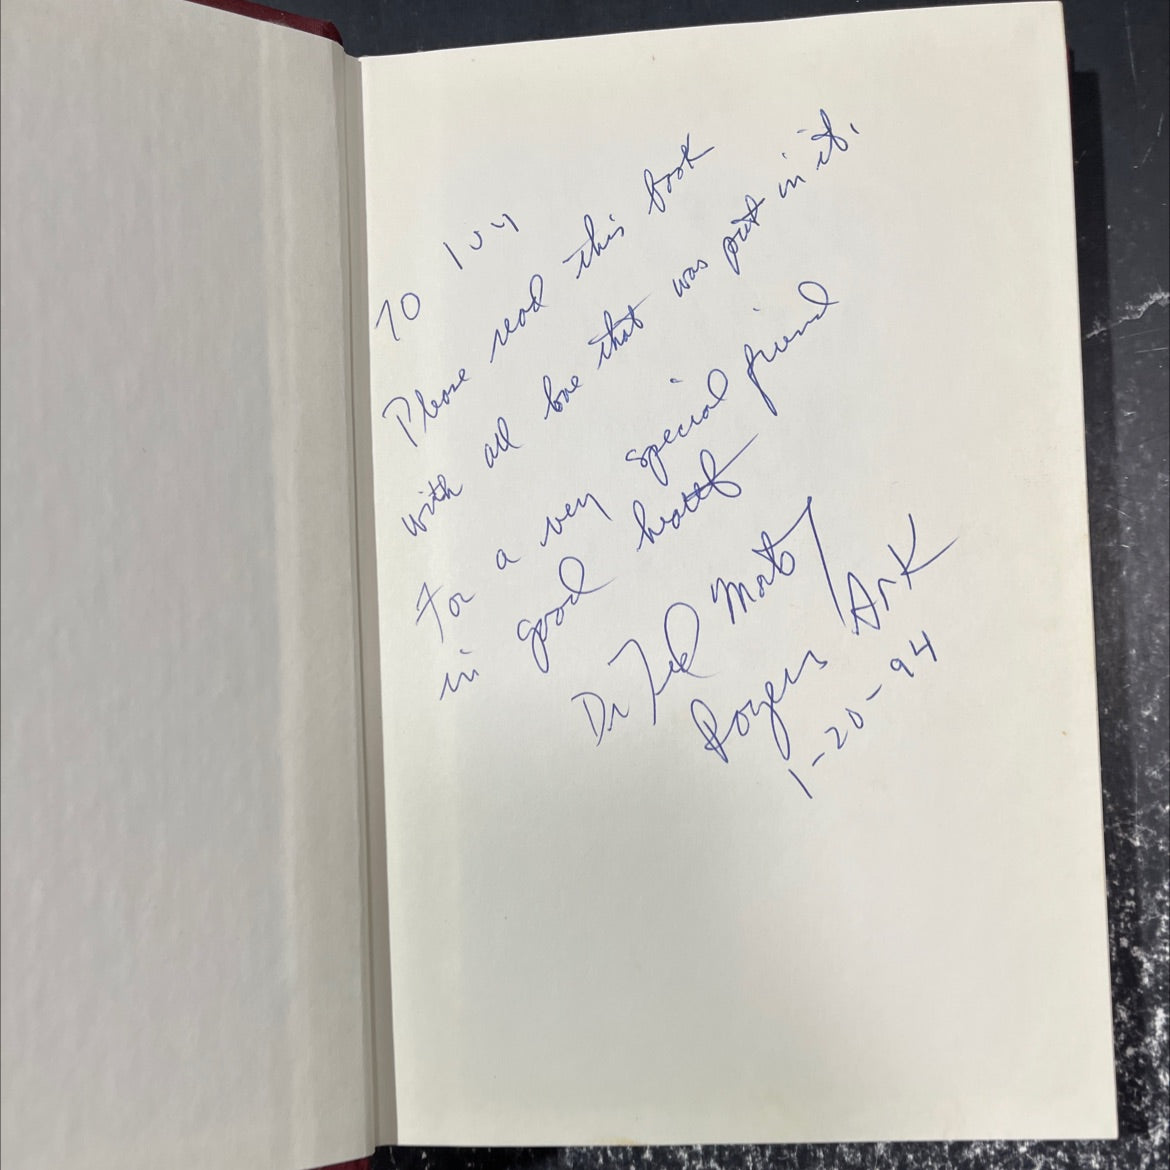 To Ivy
Please read this book
with all love that was put in it.
For a very special friend
in good health
Dr Ted Morter
Rogers Ark
1-20-94